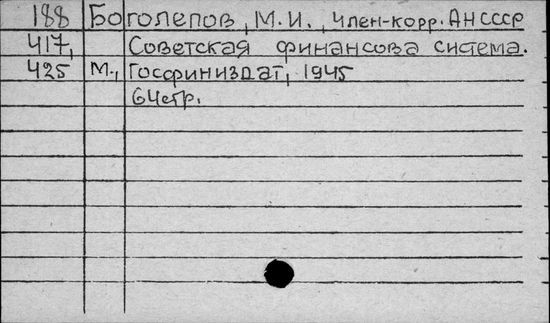 188 Боголепов, М.И., член-корр. АН СССР
417, Советская финансова система.
425 М., Госфиниздат, 1945
64стр.